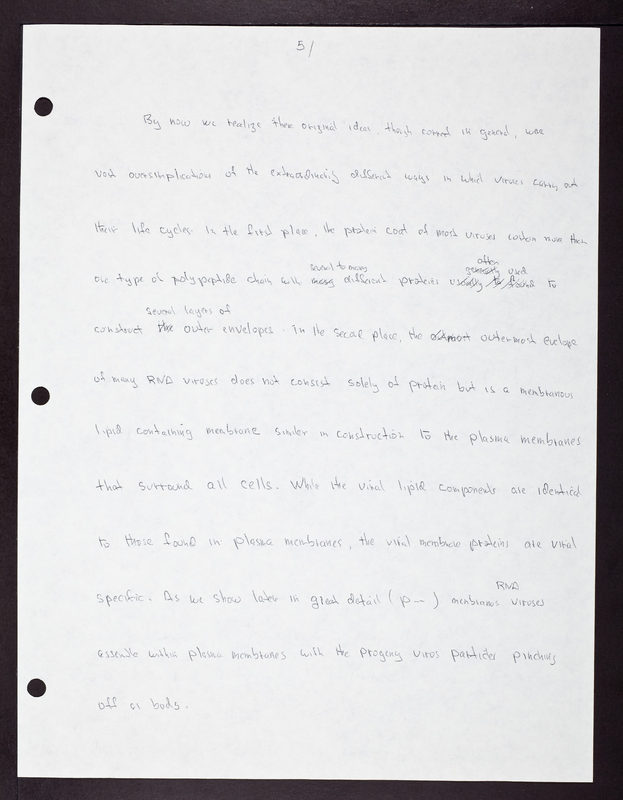 5/
By now we realize these original ideas, though correct in general, were
vast oversimplications of the extraordinarily different ways in which viruses carry out
their life cycles. In the first place, the protein coat of most viruses contain more than
one type of polypeptide chain with many different proteins usually to found to
several to many
often
generally used
construct the outer envelopes. In the second place, the outermost envelope
several layers of
of many RNA viruses does not consist solely of protein but is a membranous
lipid containing membrane similar in construction to the plasma membranes
that surround all cells. While the viral lipid components are identical
to those found in plasma membranes, the viral membrane proteins are viral
specific. As we show later in great detail (p--) membranos viruses
RNA
assemble within plasma membranes with the progeny virus particles pinching
off as buds.